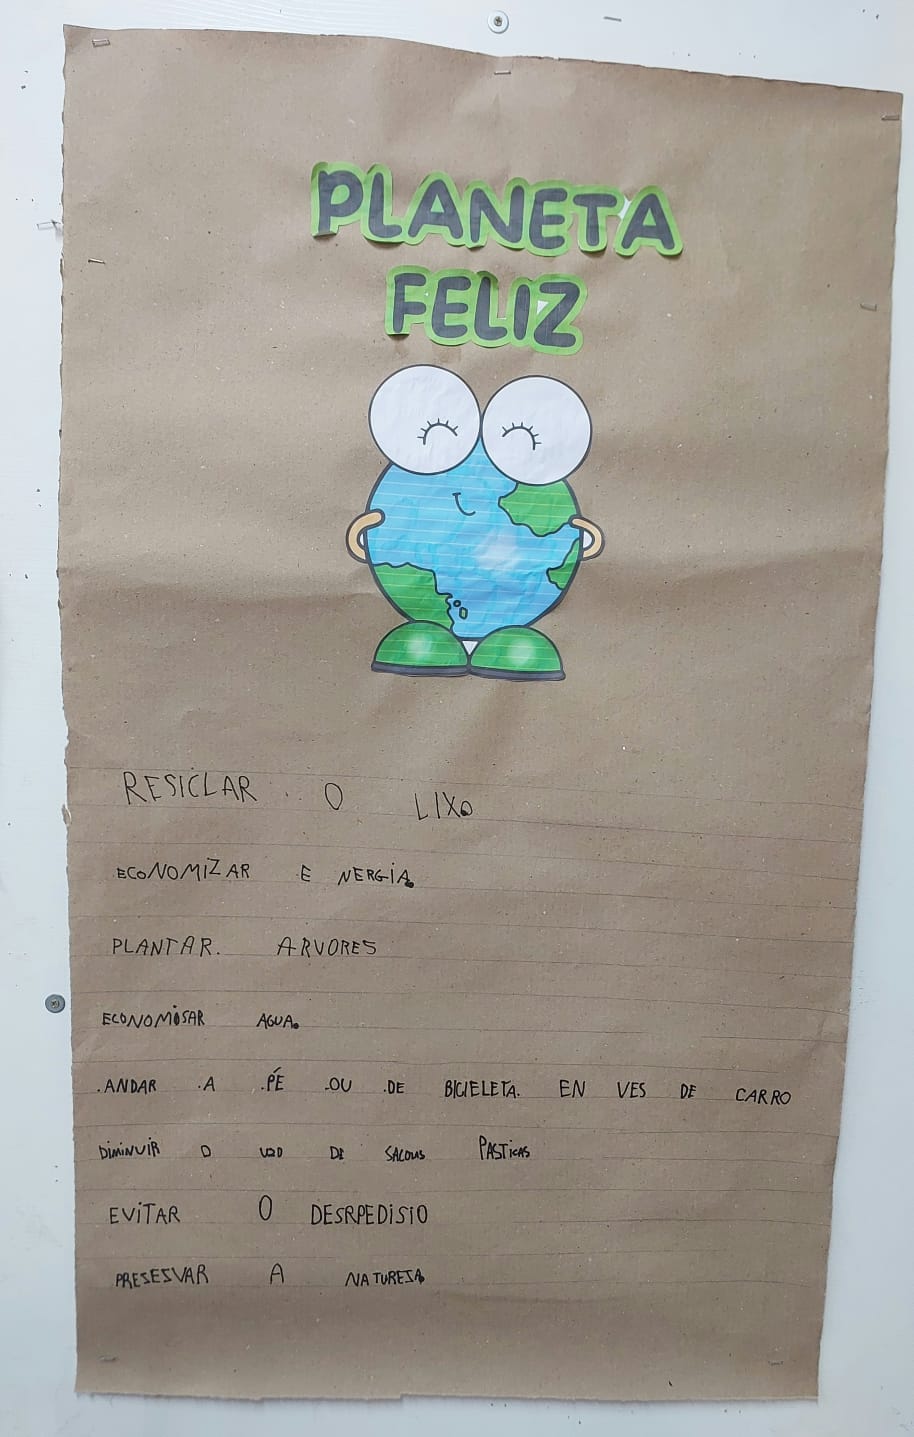 PLANETA
FELIZ
RESICLAR O LIXO
ECONOMIZAR E NERGIA.
PLANTAR. ARVORES
ECONOMISAR AGUA.
.ANDAR .A .PÉ .OU .DE BICICLETA. EN VES DE CARRO
DIMINUIR O USO DE SACOLAS PASTICAS
EVITAR O DESRPEDISIO
PRESESVAR A NATURESA